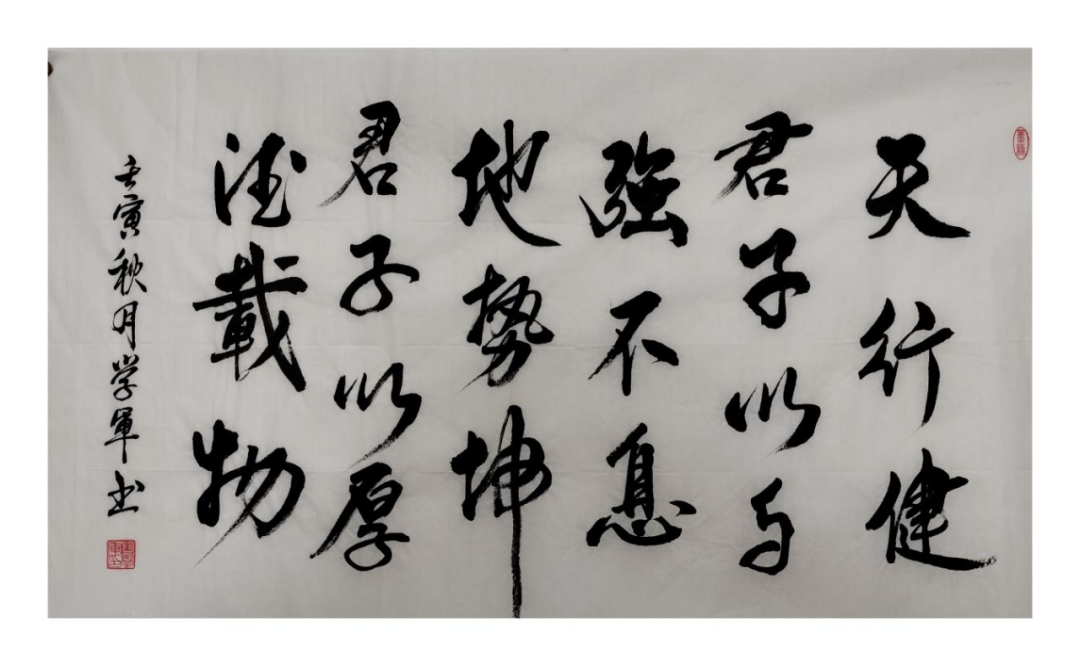 天行健
君子以自
強不息
地势坤
君子以厚
德載物
壬寅秋月学軍书